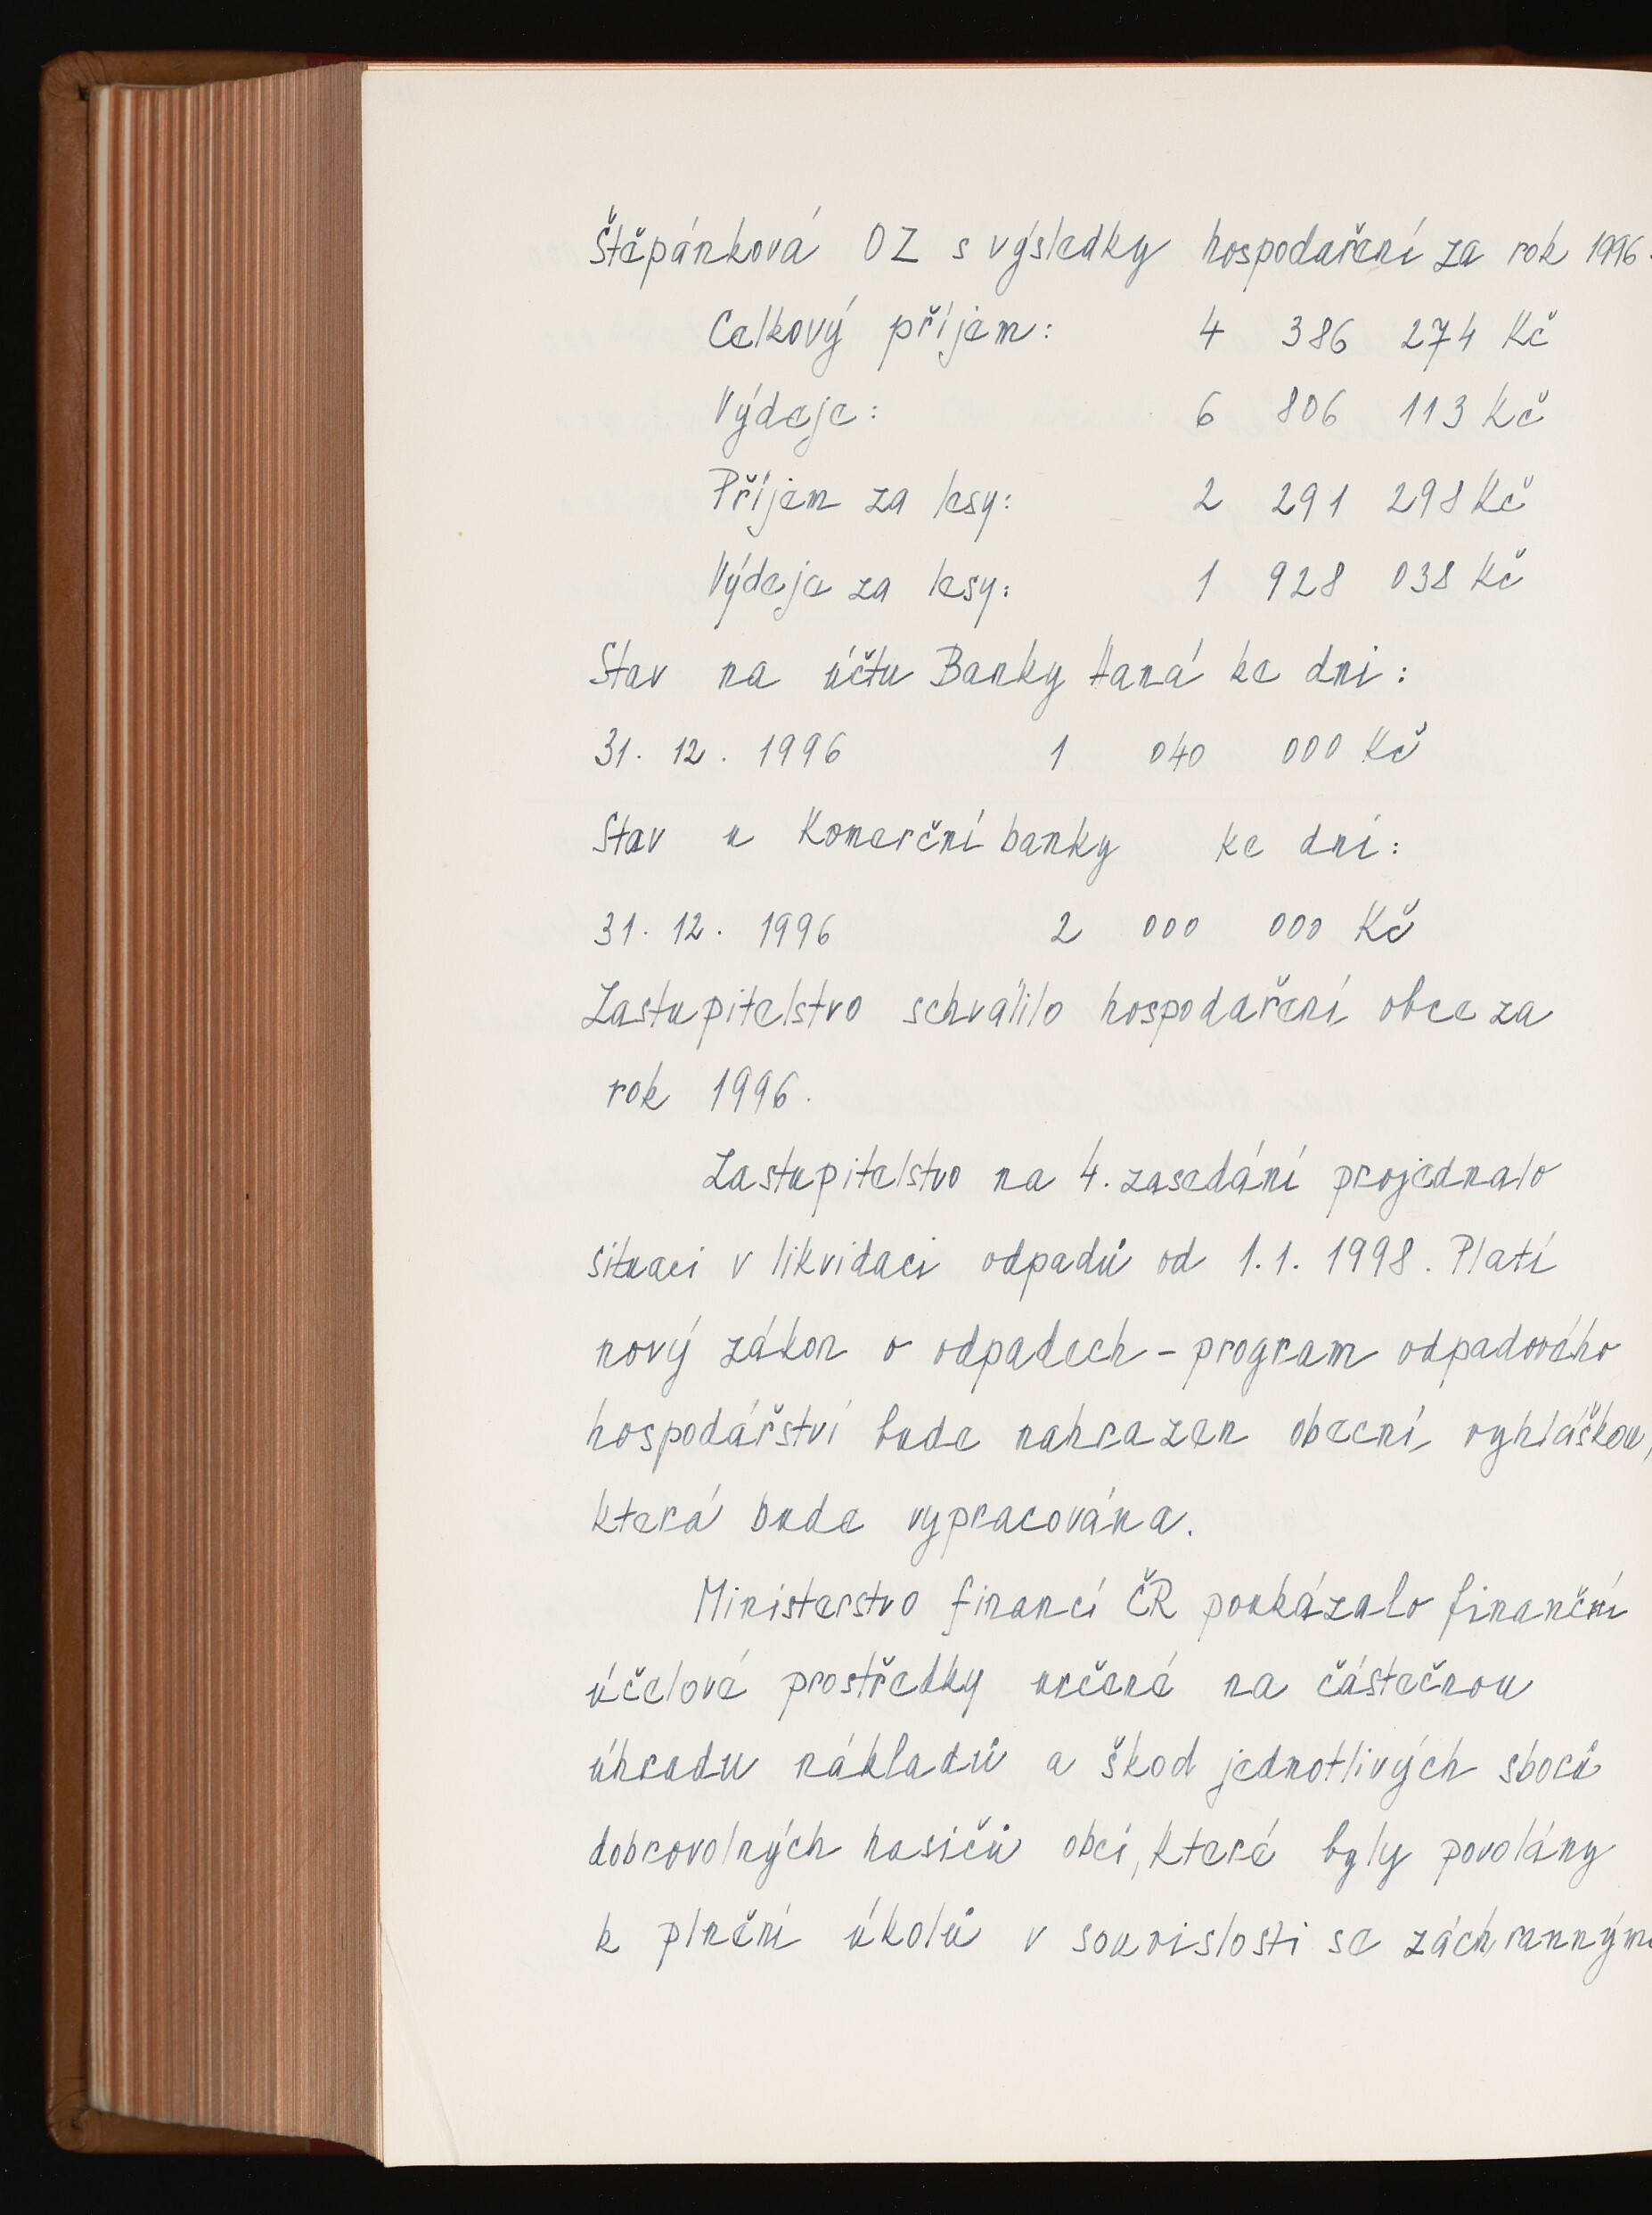 Štěpánková OZ s výsledky hospodaření za rok 1996.
Celkový příjem: 4 386 274 Kč
Výdeje: 6 806 113 Kč
Příjem za lesy: 2 291 298 Kč
Výdeje za lesy: 1 928 038 Kč
Stav na účtu Banky Haná ke dni:
31. 12. 1996 1 040 000 Kč
Stav u Komerční banky ke dni:
31. 12. 1996 2 000 000 Kč
Zastupitelstvo schválilo hospodaření obce za
rok 1996.
Zastupitelstvo na 4. zasedání projednalo
situaci v likvidaci odpadů od 1. 1. 1998. Platí
nový zákon o odpadech - program odpadového
hospodářství bude nahrazen obecní vyhláškou,
která bude vypracována.
Ministerstvo financí ČR poukázalo finanční
účelové prostředky určené na částečnou
úhradu nákladů a škod jednotlivých sborů
dobrovolných hasičů obcí, které byly povolány
k plnění úkolů v souvislosti se záchrannými